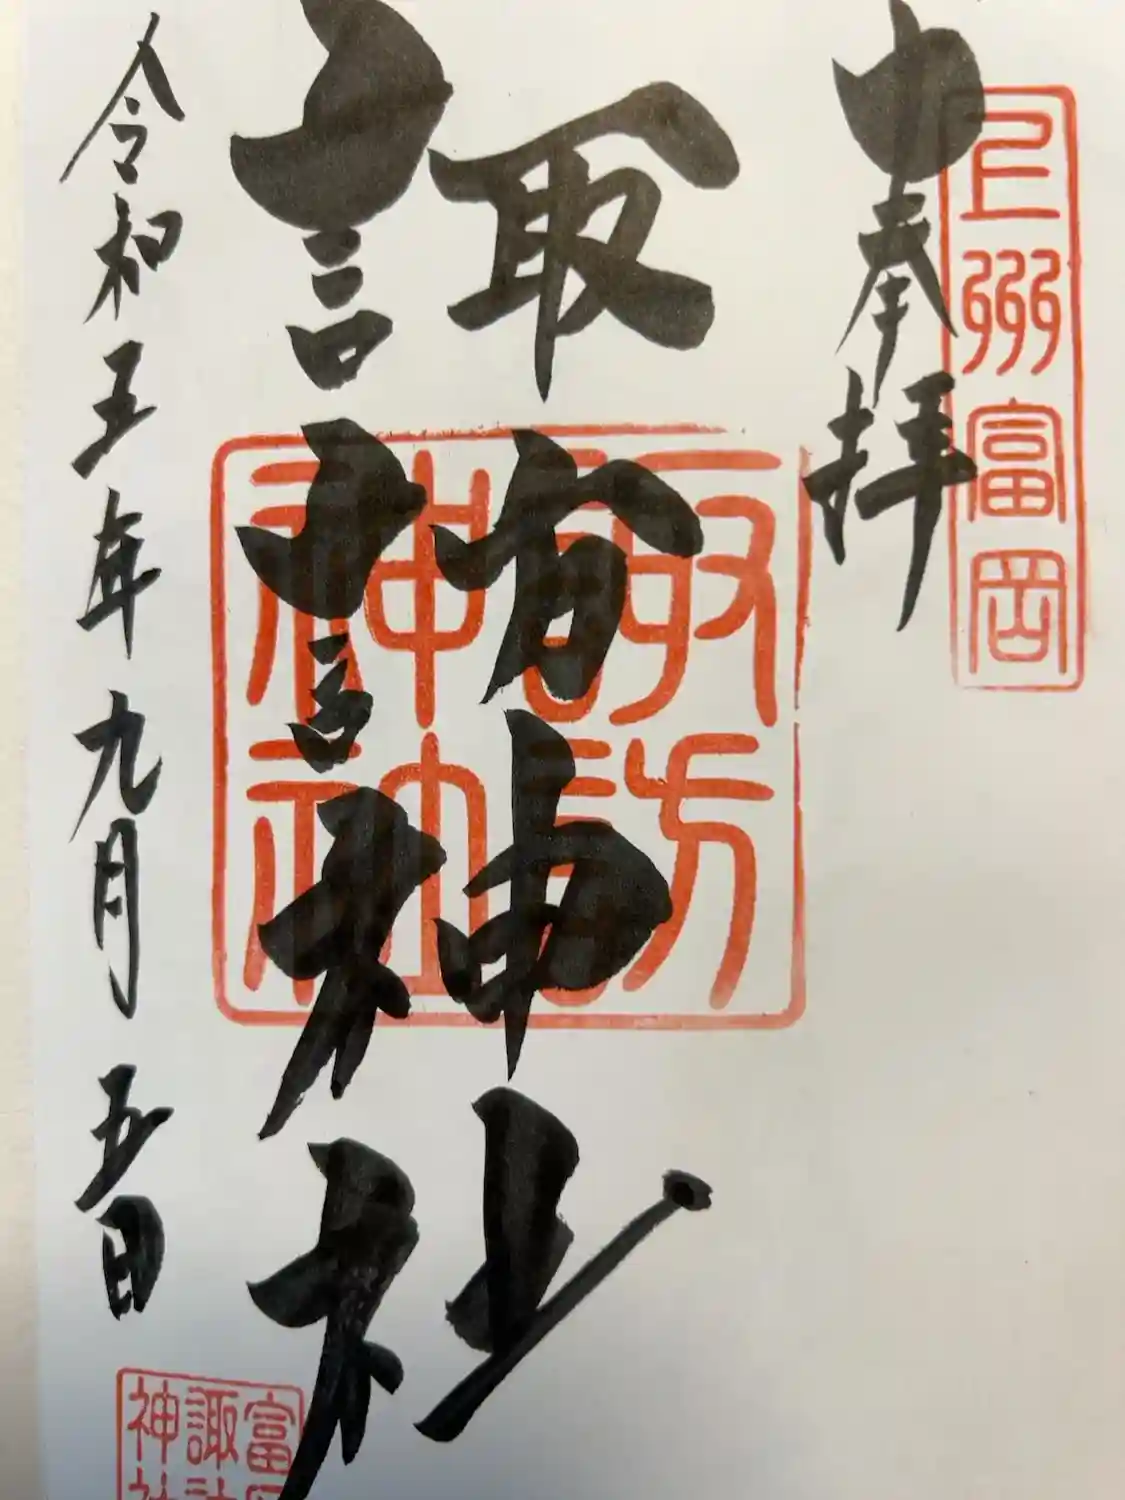 上州富岡
奉拝
諏訪神社
諏訪
神社
令和五年九月五日
富岡
諏訪
神社